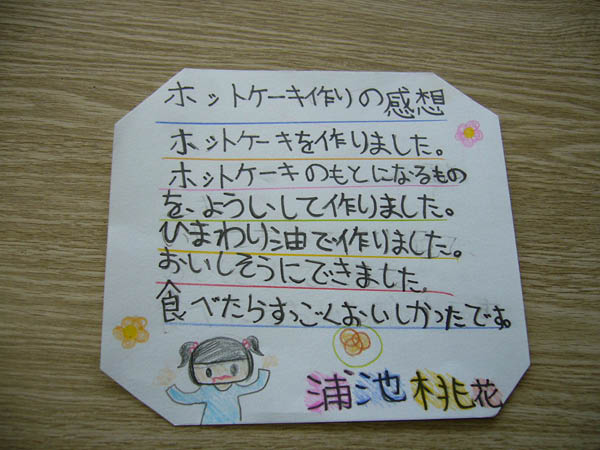 ホットケーキ作りの感想
ホットケーキを作りました。
ホットケーキのもとになるもの
を、よういして作りました。
ひまわり油で作りました。
おいしそうにできました。
食べたらすっごくおいしかったです。
浦池桃花